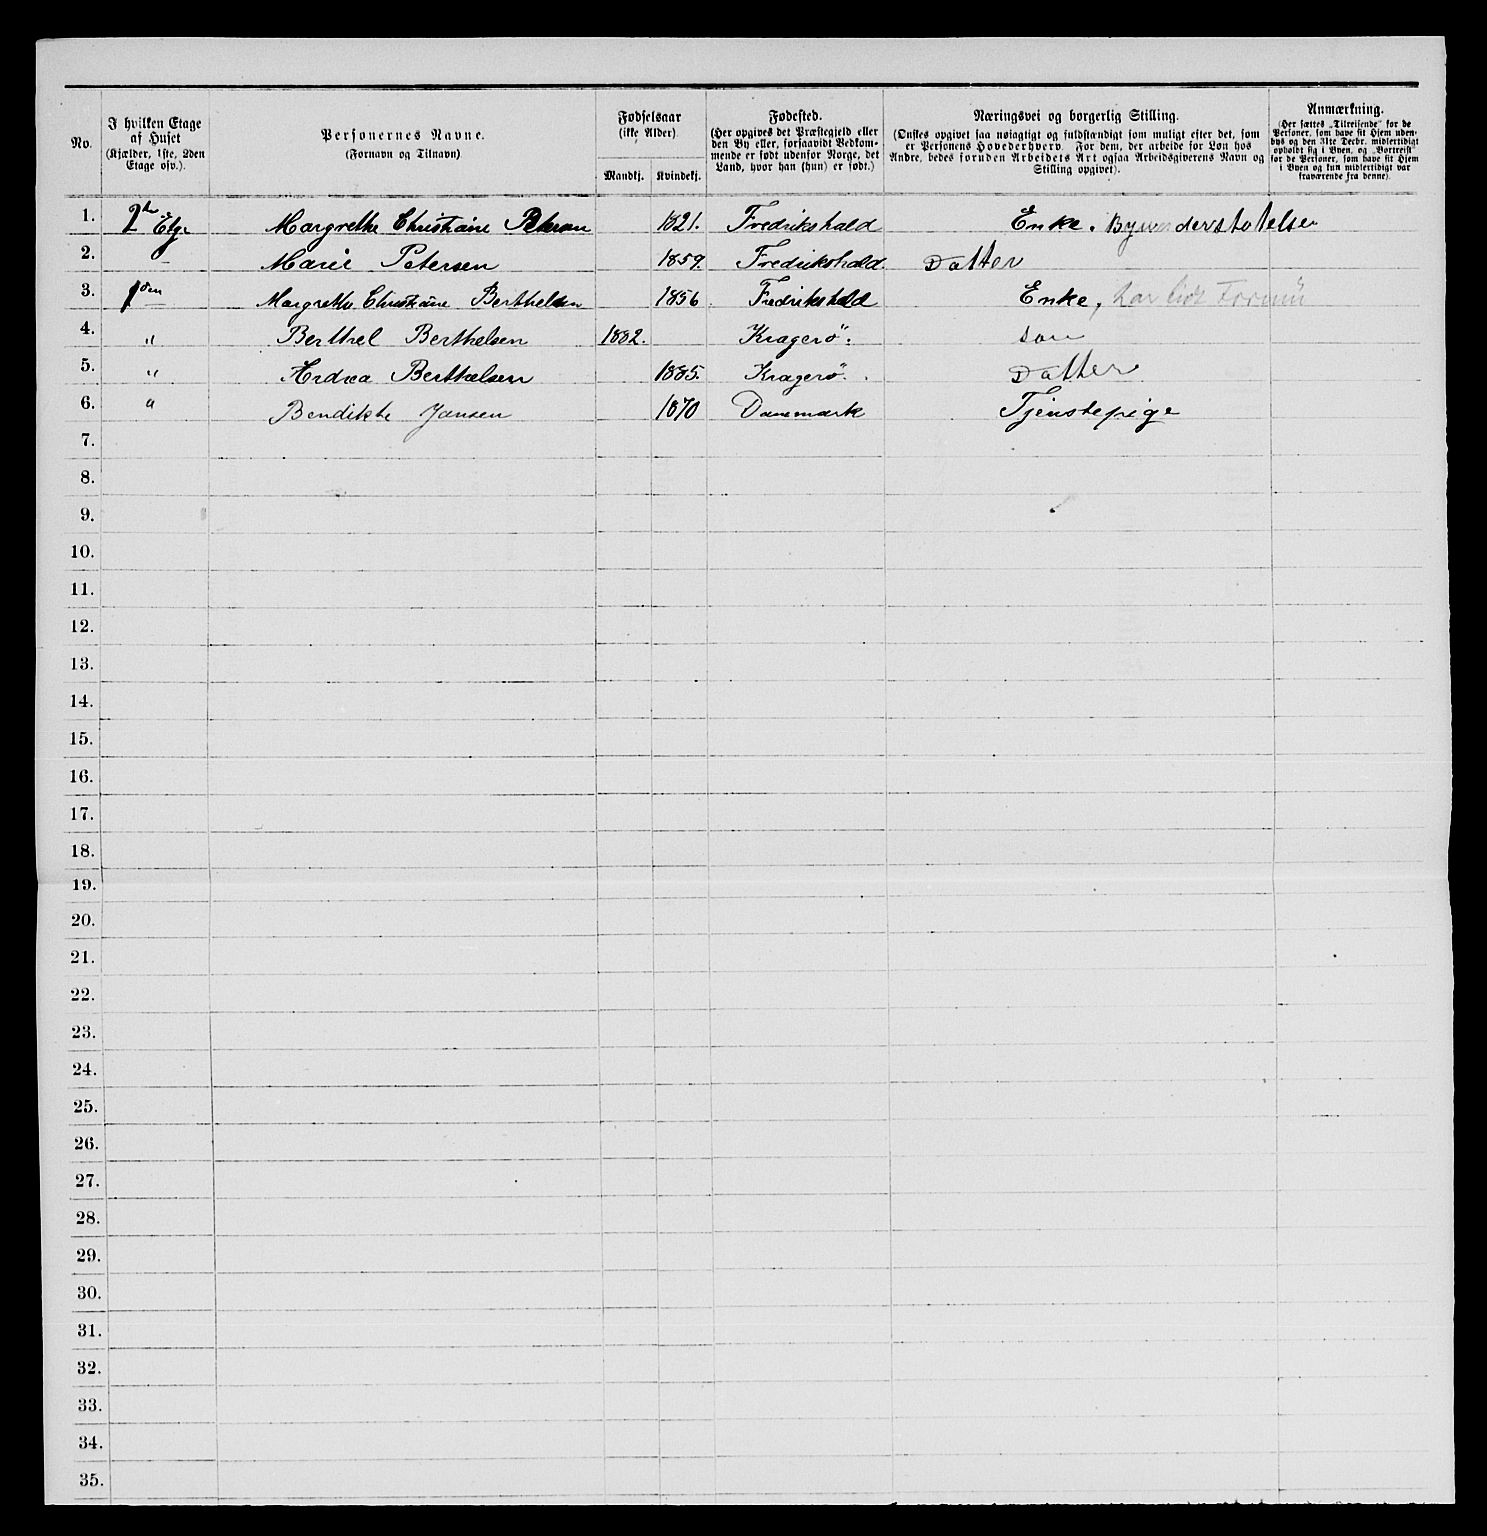 No.
I hvilken Etage
af Huset
(Kjælder, 1ste, 2den
Etage osv.).
Personernes Navne.
(Fornavn og Tilnavn)
Fødselsaar
(ikke Alder)
Mandkj. Kvindekj.
Fødested.
(Her opgives det Præstegjeld eller
den By eller, forsaavidt Vedkom-
mende er født udenfor Norge, det
Land, hvor han (hun) er født.)
Næringsvei og borgerlig Stilling.
(Ønskes opgivet saa nøiagtigt og fuldstændigt som muligt efter det, som
er Personens Hovederhverv. For dem, der arbeide for Løn hos
Andre, bedes foruden Arbeidets Art ogsaa Arbeidsgiverens Navn og
Stilling opgivet).
Anmærkning.
(Her sættes „Tilreisende" for de
Personer, som have sit Hjem uden-
bys og den 31te Decbr. midlertidigt
opholdt sig i Byen, og „Bortreist"
for de Personer, som have sit Hjem
i Byen og kun midlertidigt var
fraværende fra denne).
1. Etge Margrethe Christiane Petersen 1821. Fredrikshald Enke. Byunderstøtelse
2. Marie Petersen 1859. Fredrikshald. Datter
3. Margrethe Christiane Berthelsen 1856 Fredrikshald Enke, har lidt
4. " Berthel Berthelsen 1882. Kragerö. Søn
5. " Andrea Berthelsen 1885. Kragerö. Datter
6. " Bendikte Jansen 1870 Danmark Tjenstepige
7.
8.
9.
10.
11.
12.
13.
14.
15.
16.
17.
18.
19.
20.
21.
22.
23.
24.
25.
26.
27.
28.
29.
30.
31.
32.
33.
34.
35.